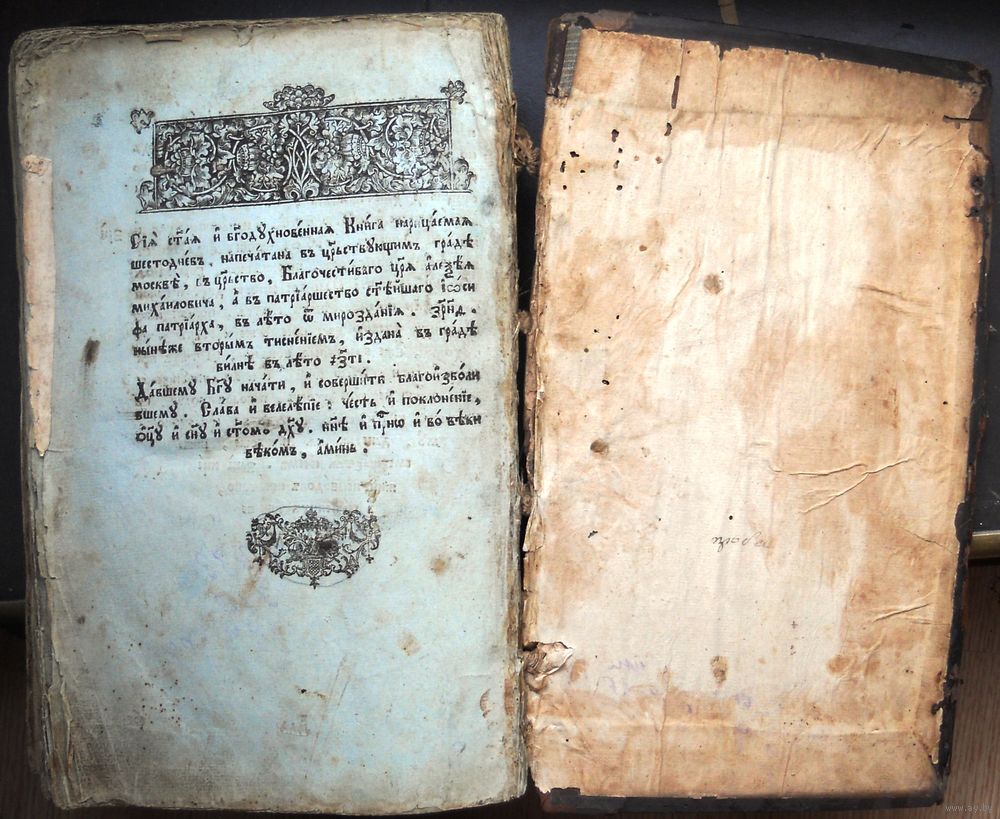 Сїѧ̀ ст҃аѧ и҆ бг҃одꙋхнове́ннаѧ Кни́га нарица́емаѧ
шестодне́въ, напеча́тана въ цр҃ьствꙋющимъ гра́дѣ
москвѣ̀, въ цр҃ьство, Благочести́ваго цр҃ѧ а҆леѯѣ́ѧ
миха́иловича, а҆ въ патрїа́ршество ст҃ѣ́йшаго і҆ѡ́си
фа патрїа́рха, въ лѣ́то ѿ мирозда́нїѧ. ҂зрн҃ѳ.
ны́нѣже вторы́мъ тисне́нїемъ, и҆́здана̀ въ гра́дѣ
ви́лнѣ въ лѣ́то ҂зт҃і.
Да́вшемꙋ Бг҃ꙋ нача́ти, и҆ соверши́ти благои҆зво́ли
вшемꙋ. Сла́ва и҆ велелѣ́пїе: че́сть и҆ поклоне́нїе,
ѻ҆ц҃ꙋ̀ и҆ сн҃ꙋ и҆ ст҃о́мꙋ дх҃ꙋ. нн҃ѣ и҆ пр҃нѡ и҆ во́ вѣки
вѣко́мъ, а҆ми́нь.
www.ay.by